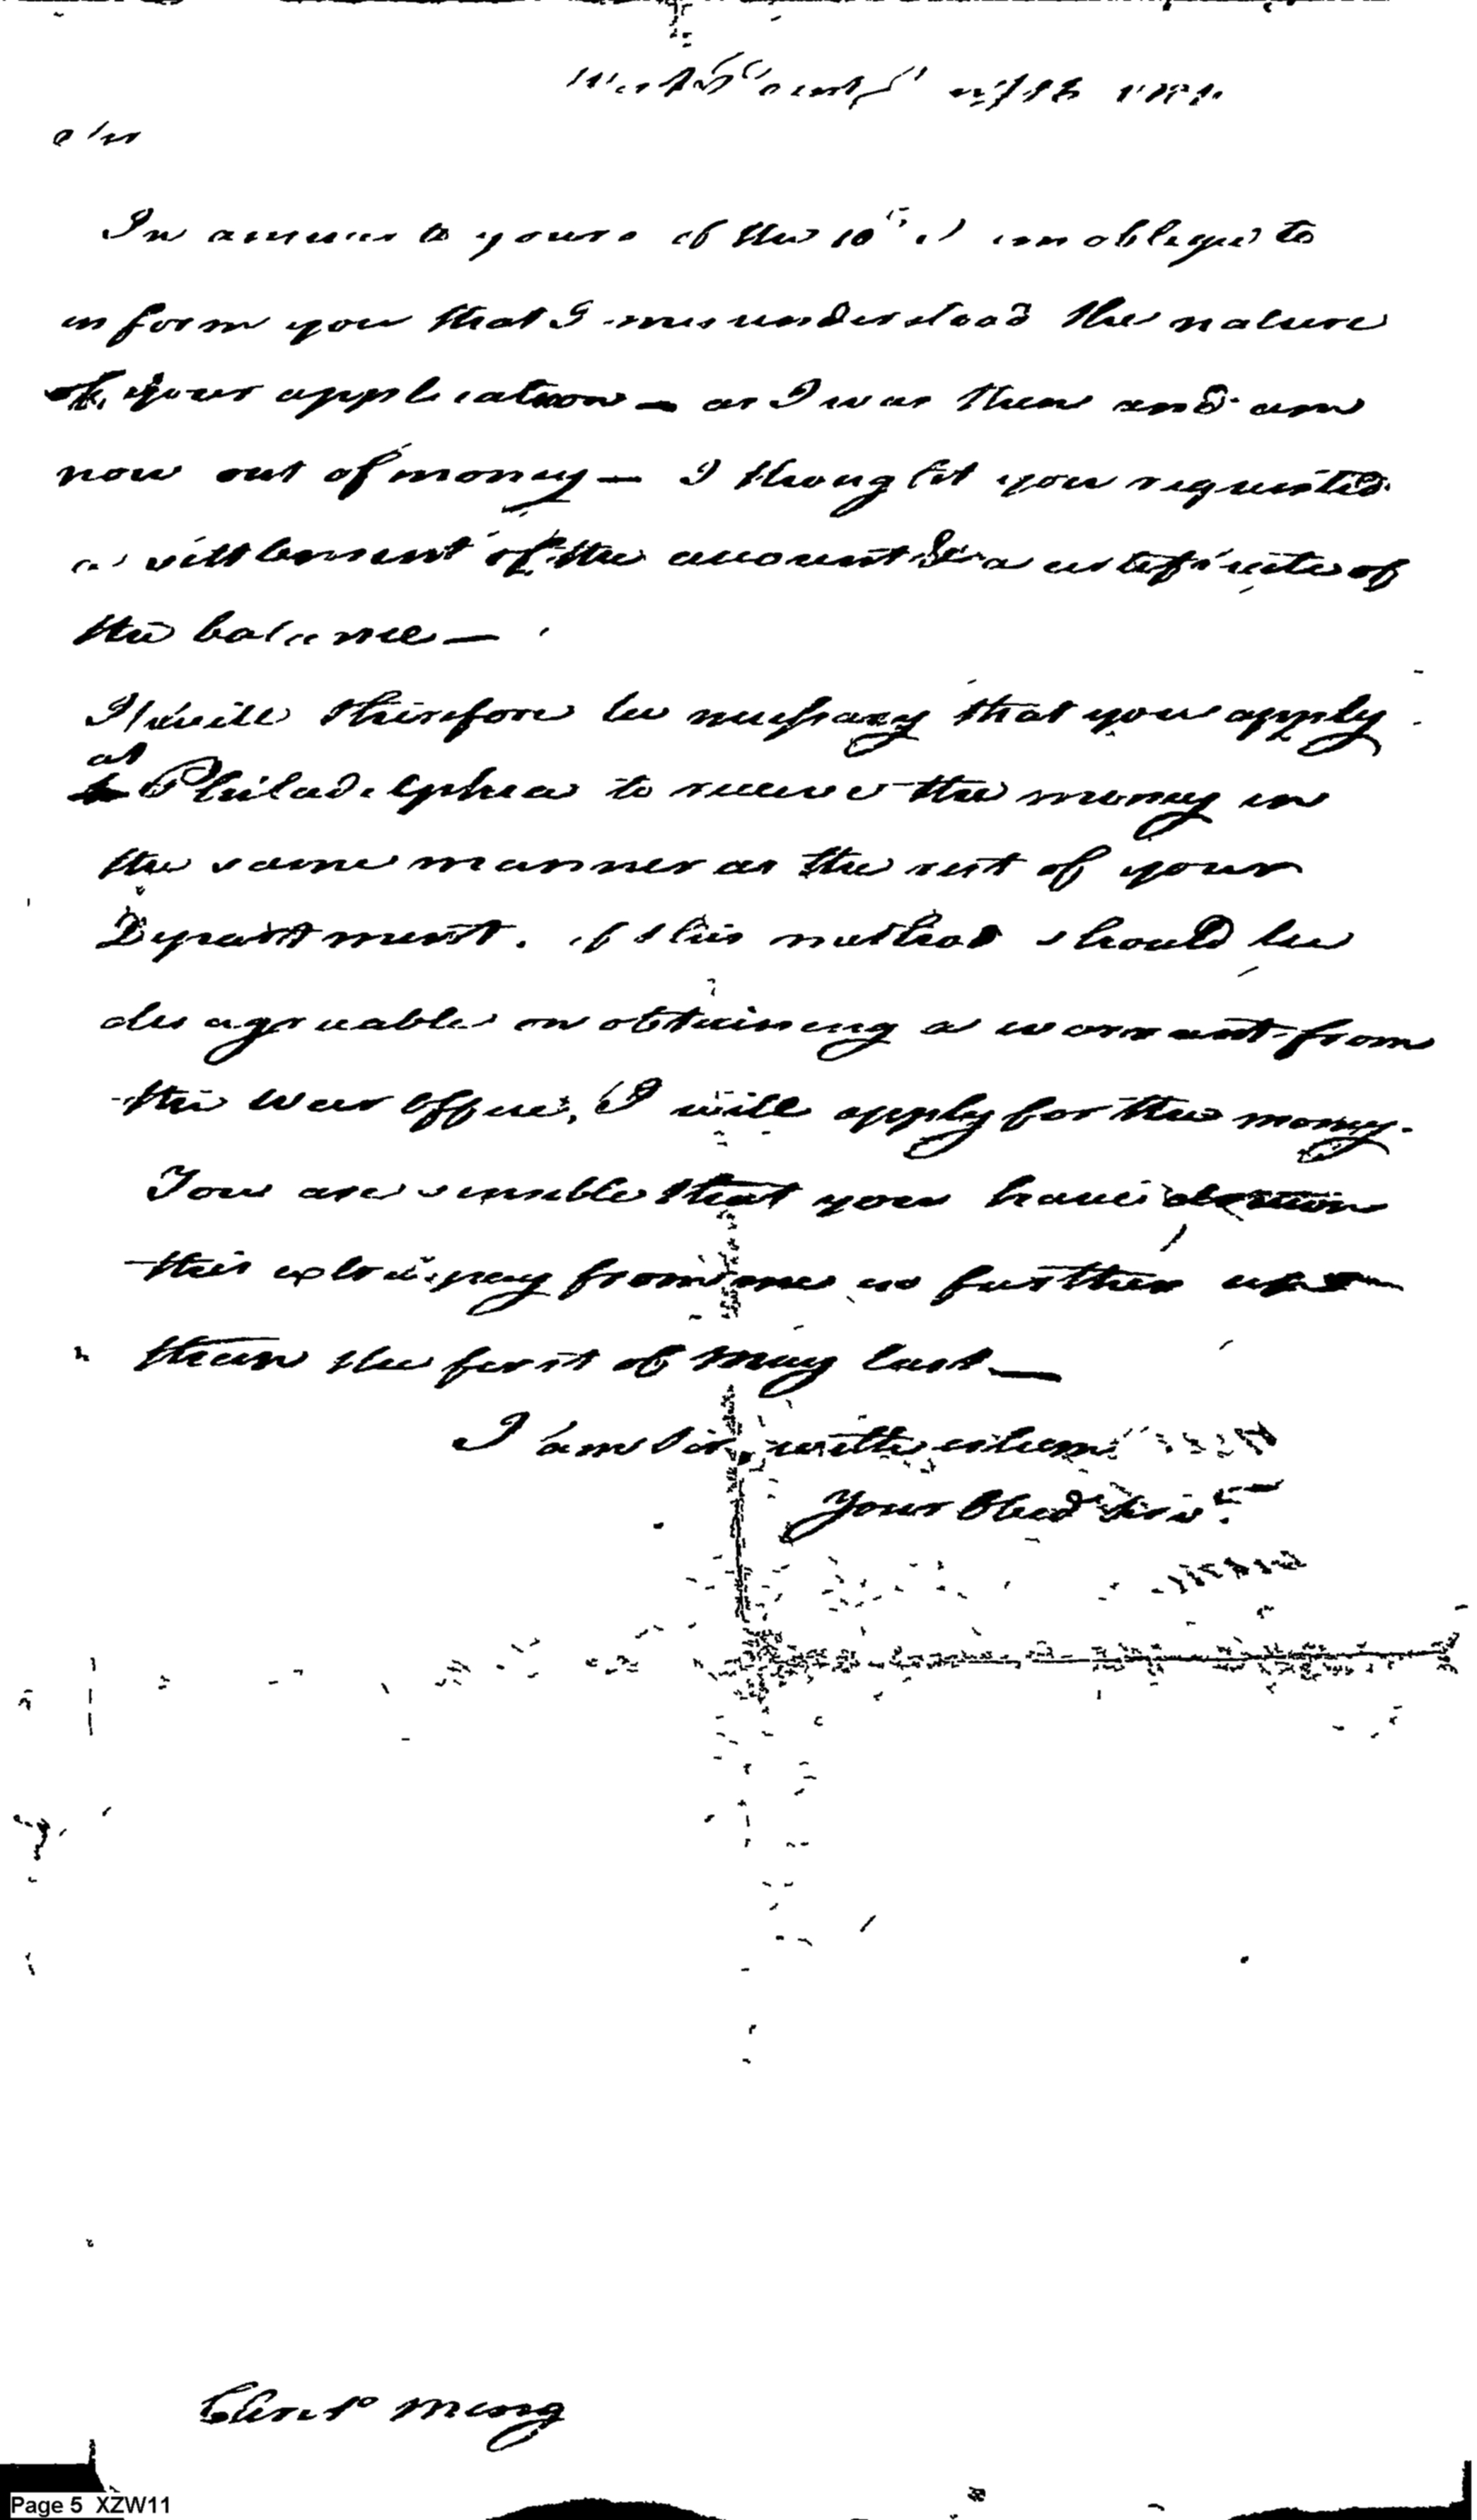 West Point
Sir
In answer to yours of the 10th I am obliged to
inform you that I misunderstood the nature
of your application – as I was then and am
now out of money – I thought you requested
a settlement of the account & a certificate of
the balance –
It will therefore be necessary that you apply
at
Philadelphia to receive the money in
the same manner as the rest of your
Department. if this method should be
disagreeable on obtaining a warrant from
the War Office, I will apply for the money.
You are sensible that you have drawn
this extra pay from me no further up
than the first of May last –
I am Sir, with esteem
Your Obed Serv.t
Ming
Page 5 XZW11